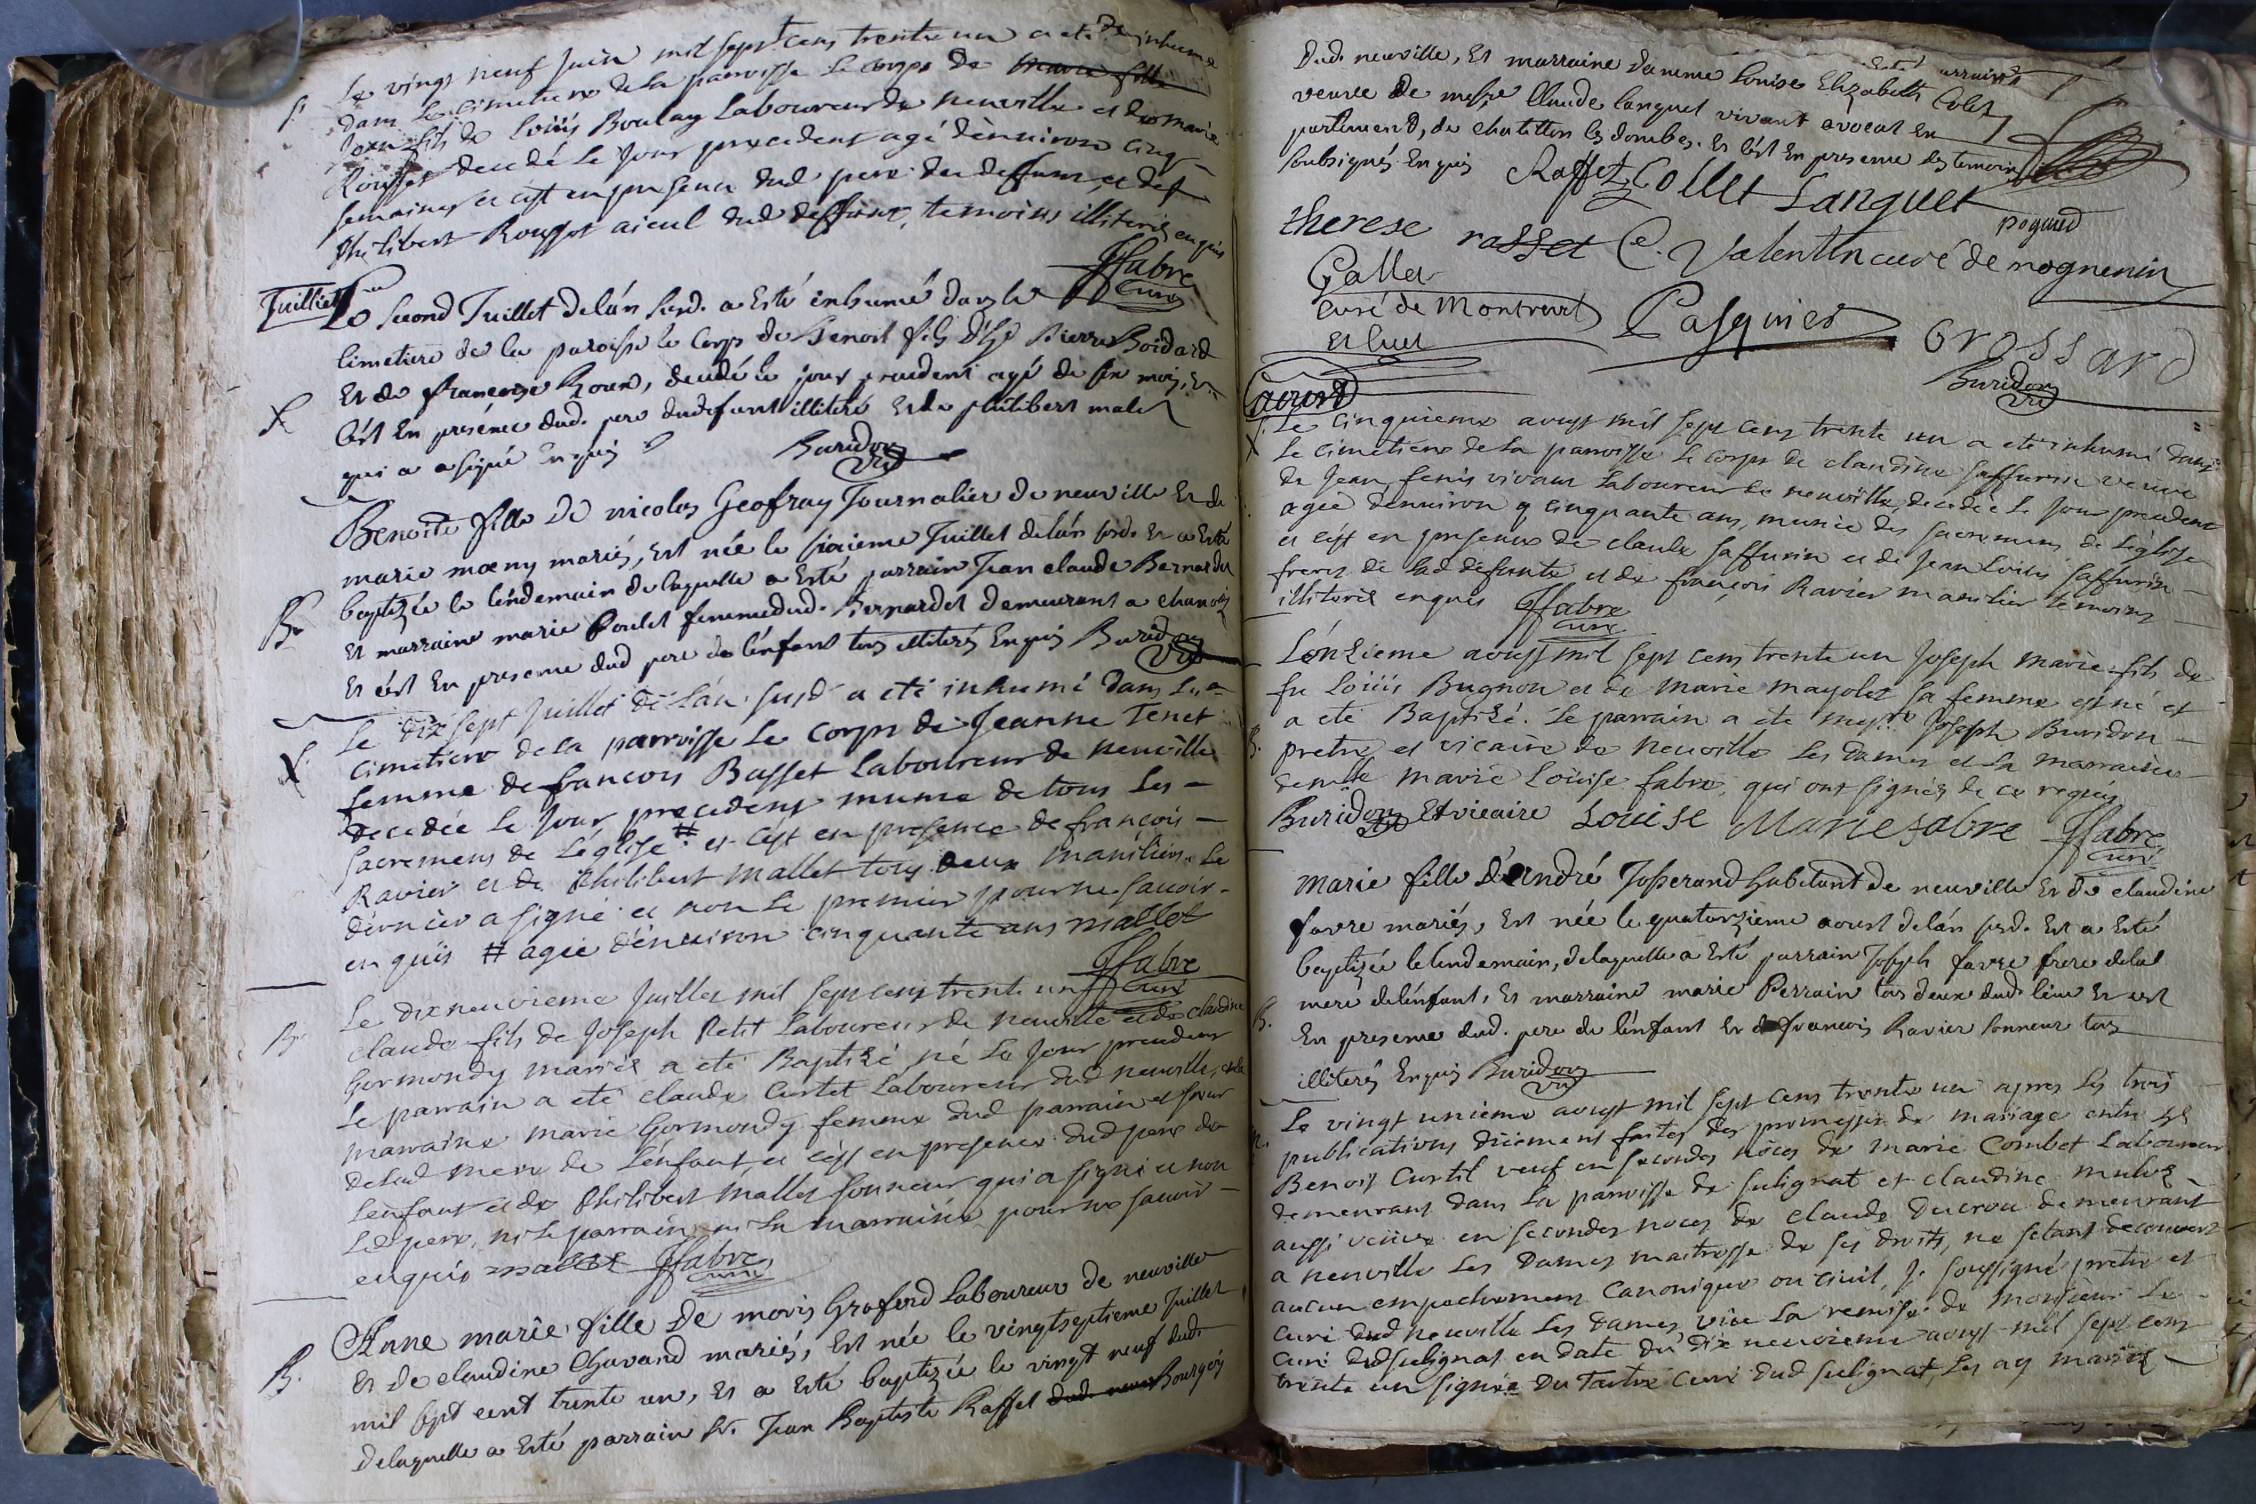 Le vingt neuf Juin mil sept cens trente un a eté inhumé
dans le cimetiere de la parroisse le corps de marie fille
fils de Loüis Boulay Laboureur de neuville et de marie
Rousset decedé le Jour precedent agé d'environ cinq
semaines et c'est en presence dud pere du deffunt et de
Philibert Rousset aieul dud deffunt, temoins illiterés enquis
JFabre
curé
Juilliet
Le second Juillet de lán susd. a Esté inhumé dans le
Cimetiere de la paroisse le Corps de Benoit fils d'Hd Pierre Boidard
Et de françoise Roux, decedé le jour precedent agé de six mois, Et
C'est En presence dud. pere dudefunt illiteré Et de philibert malet
qui a signé Enquis
Buridon
Vic
Benoite fille De nicolas Geofray Journalier de neuville Et de
marie mœny mariés, Est née le sixieme Juillet de lán susd. Et a Esté
baptizée le lendemain de laquelle a Esté parrain Jean claude Bernardet
Et marraine marie Poulet femme dud. Bernardet demeurant a chanoz
Et c'est En presence dud pere de l'enfant tous illiterés Enquis Buridon
Vic
Le dix sept Juillet de L'an susd a eté inhumé dans Le
cimetiere de la parroisse Le corps de Jeanne Tenet
femme de francois Busset Laboureur de neuville
decedée Le Jour precedent munie de tous Les
sacremens de L'eglise # et c'est en presence de francois
Ravier et de Philibert mallet tous deux maniliers. Le
dernier a signé et non Le premier pour ne savoir
enquis # agée d'environ cinquante ans mallet
JFabre
curé
Le dixneuvieme Juillet mil sept cens trente un
claude fils de Joseph Petit Laboureur de neuville et de claudine
Gormondy mariés a eté Baptisé né Le Jour precedent
Le parrain a eté claude Curtet Laboureur dud neuville, et la
marraine marie Gormondy femme dud parrain et sœur
de lad mere de L'enfant, et c'est en presence dud pere de
L'enfant et de Philibert mallet sonneur qui a signé et non
Le pere, ni le parrain ni La marraine pour ne savoir
enquis mallet JFabre
curé
Anne marie fille De moris Groferd Laboureur de neuville
Et De claudine Chavand mariés, Est née le vingtseptieme Juillet
mil sept cent trente un, Et a Esté baptizée le vingt neuf dud.
delaquelle a Esté parrain Sr. Jean Baptiste Raffet dud. neuv Bourgois
Dud. neuville, Et marraine dame Louise Elizabeth Colet
veuve de messe Claude languet vivant avocat En
parlement, de chatillon les dombes. Et c'est En presence des temoins
soubsignés Enquis Raffet Collet Languet
therese rasset C. Valentin curé de nognenin
pogand
Gallet
curé de Montreval
Et Cuet
Pasquier
Grossard
Buridon
Vic
aoust
Le cinquieme aoust mil sept cens trente un a eté inhumé dans
Le cimetiere de la parroisse Le corps de claudine Saffurin veuve
de Jean fenis vivant Laboureur de neuville, decedée Le Jour precedent
agée d'environ cinquante ans, munie des sacremens de L'eglise
et c'est en presence de claude Saffurin et de Jean Loüis Saffurin
freres de lad defunte et de francois Ravier manilier temoins
illiterés enquis JFabre
curé
L'onzieme aoust mil sept cens trente un Joseph marie fils de
fu Loüis Bugnon et de marie mayolet sa femme est né et
a eté Baptisé. Le parrain a eté messre Joseph Buridon
pretre et vicaire de neuville Les Dames et La marraine
demlle marie Loüise fabre, qui ont signés de ce requis
Buridon Et vicaire Louise Marie fabre JFabre
curé
Marie fille d'André Josserand habitant de neuville Et de claudine
favre mariés, Est née le quatorzieme aoust de lán susd. Et a Esté
baptizée le lendemain, de laquelle a Esté parrain Joseph favre frere de la
mere de lénfant, Et marraine marie Perrain tous deux dud. lieu Et est
En presence dud. pere de lénfant Et de francois Ravier sonneur tous
illiterés Enquis Buridon
Vic
Le vingt unieme aoust mil sept cens trente un apres les trois
publications düement faites des promesses de mariage entre
Benoit Curtil veuf en secondes nôces de marie Combet Laboureur
demeurant dans La parroisse de sulignat et claudine mulet
aussi veüve en secondes noces de claude Ducrou demeurant
a neuville Les Dames maitresse de ses droits, ne setant decouvert
aucun empechement canonique ou civil, Je soussigné pretre et
curé dud neuville Les Dames, vüe La remise de monsieur Le
curé dudsulignat en date du dix neuvieme aoust mil sept cens
trente un signée Du Tartre curé dud sulignat, Les ay mariés